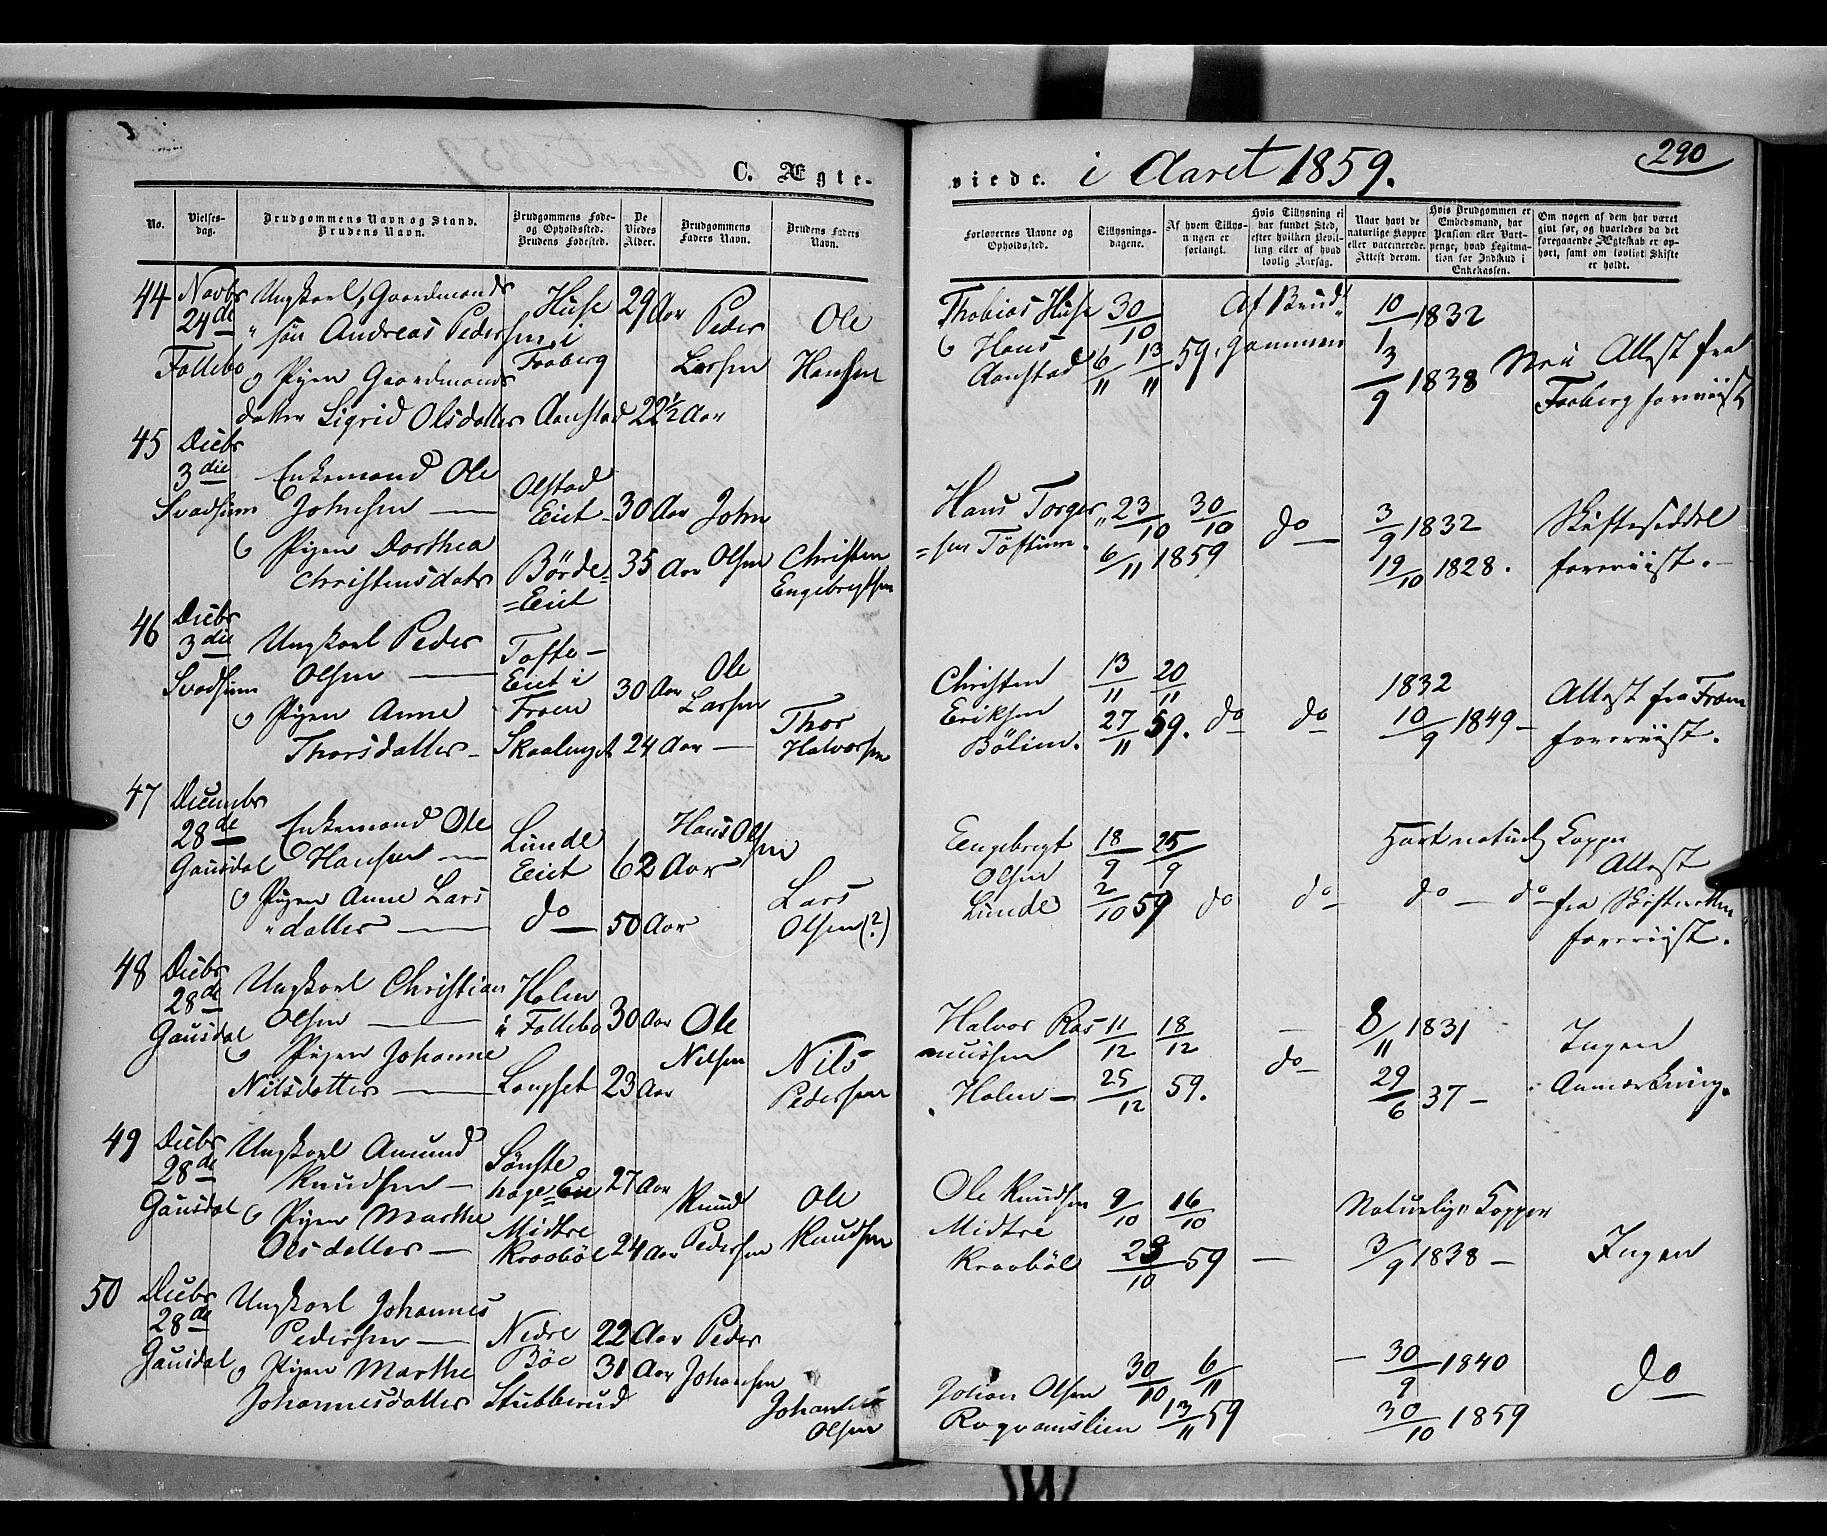 C. Ægte-
viede. i Aaret 1859.
290
No.
Vielses-
dag.
Brudgommens Navn og Stand.
Brudens Navn.
Brudgommens Føde-
og Opholdssted.
Brudens Fødested.
De
Viedes
Alder.
Brudgommens
Faders Navn.
Brudens Faders
Navn.
Forlovernes Navne og
Opholdssted.
Tillysnings-
dagene.
Af hvem Tillys-
ningen er
forlangt.
Hvis Tillysning ei
har fundet Sted,
efter hvilken Bevil-
ling eller af hvad
lovlig Aarsag.
Naar havt de
naturlige Kopper
eller vaccinerede.
Attest derom.
Hvis Brudgommen er
Embedsmand, har
Pension eller Vart-
penge, hvad Legitima-
tion for Indskud i
Enkekassen.
Om nogen af dem har været
gift før, og hvorledes da det
foregaaende Ægteskab er op-
hørt, samt om lovligt Skifte
er holdt.
44
Novbr
24de
Follebo
Ungkarl, Gaardmands
søn Andreas Pedersen
Pigen Gaardmands
datter Sigrid Olsdatter
Huse
i
Faaberg
Aanstad
29 Aar
22½ Aar
Peder
Larsen
Ole
Hansen
Thobias Huse
Hans
Aanstad
30/10
6/11 13/11 59.
Af Brud-
gommen
10/1 1832
3/9 1838
Attest fra
Faaberg foreviist
45
Decbr
3die
Svadsum
Enkemand Ole
Johnsen
Pigen Dorthea
Christensdatr
Olstad
Eiet
Børde=
=Eiet
30 Aar
35 Aar
John
Olsen
Christen
Engebregtsen
Hans Torger
=sen Toftum
23/10 30/10
6/11 1859
do
3/9 1832
19/10 1828.
Skifteseddel
foreviist.
46
Decbr
3die
Svadsum
Ungkarl Peder
Olsen
Pigen Anne
Thorsdatter
Tofte-
Eiet i
Froen
Skaalayet
30 Aar
24 Aar
Ole
Larsen
Thor
Halvorsen
Christen
Eriksen
Bølien.
13/11 20/11
27/11 59.
do
do
1832
10/9 1849
Attest fra Froen
foreviist.
47
Decembr
28de
Gausdal
Enkemand Ole
Hansen
Pigen Anne Lars
datter
Lunde
Eiet
do
62 Aar
50 Aar
Hans Olsen
Lars
Olsen (?)
Engebregt
Olsen
Lunde
18/9 25/9
2/10 59
do
do
Havt naturl. Kopper
do
do
Attest
fra Skifteretten
foreviist.
48
Decbr
28de
Gausdal
Ungkarl Christian
Olsen
Pigen Johanne
Nilsdatter
Holen
i Follebo
Longset
30 Aar
23 Aar
Ole
Nilsen
Nils
Pedersen
Halvor Ras
mussen
Holen
11/12 18/12
25/12 59.
do
8/11 1831
29/6 37
Ingen
Anmærkning.
49
Decbr
28de
Gausdal
Ungkarl Amund
Knudsen
Pigen Marthe
Olsdatter
Sønste
hage=Eie
Midtre
Kraabøl
27 Aar
24 Aar
Knud
Pedersen
Ole
Knudsen
Ole Knudsen
Midtre
Kraabøl
9/10 16/10
23/10 59
Naturlige Kopper
3/9 1838
Ingen
50
Decbr
28de
Gausdal
Ungkarl Johannes
Pedersen
Pigen Marthe
Johannesdatter
Nedre
Böe
Stubberud
22 Aar
31 Aar
Peder
Johansen
Johannes
Olsen
Johan Olsen
Rogvamslien
30/10 6/11
13/11 59
30/9 1840
30/10 1859
do